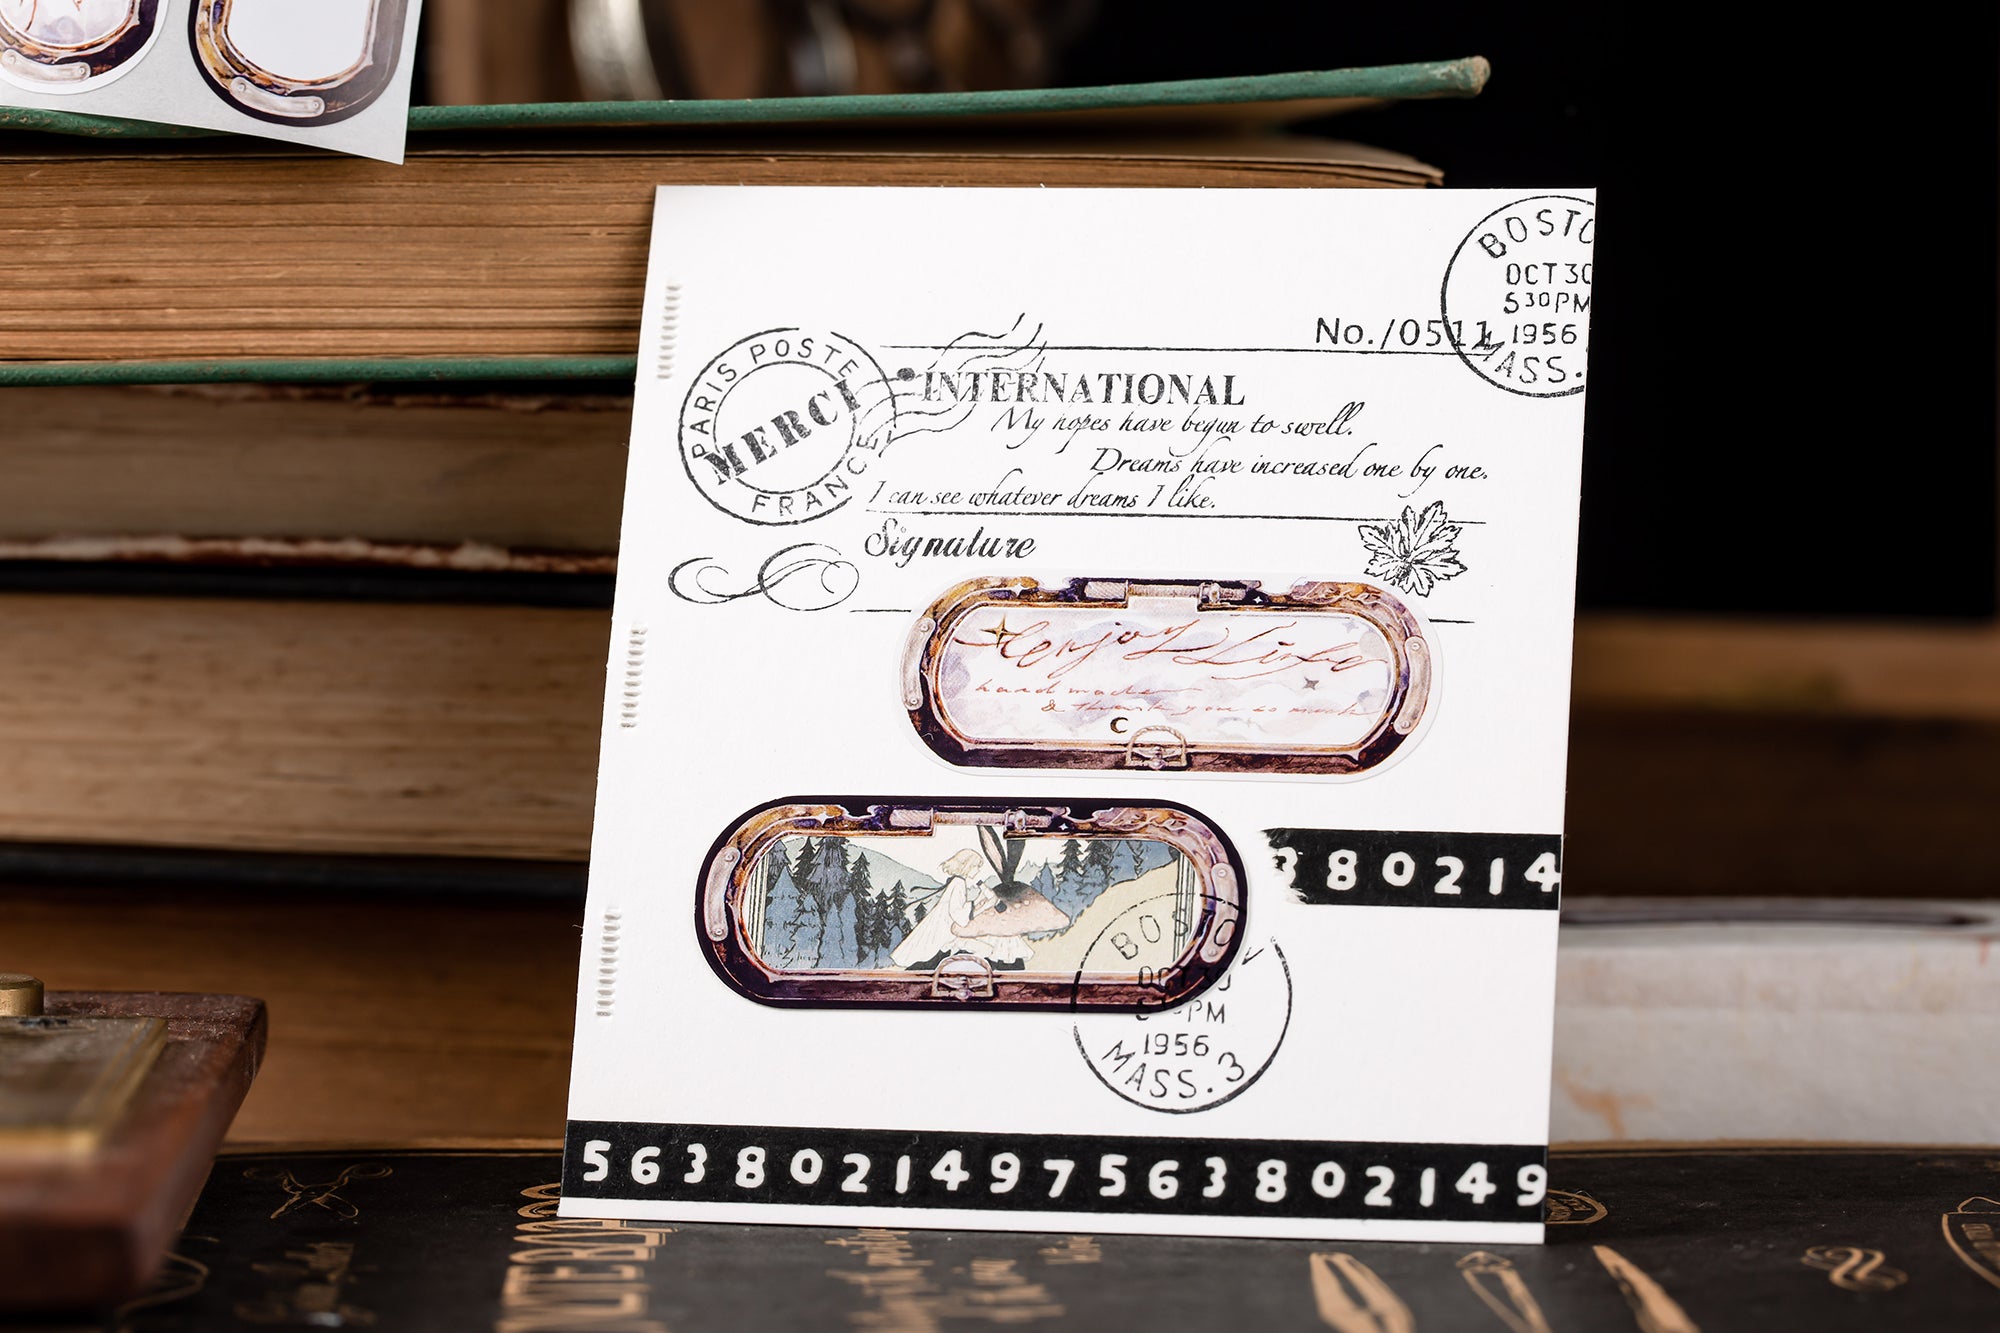 BOSTO
OCT 30
5 30 PM
1956
MASS.
No./0511
PARIS POSTE
MERCI
FRANCE
INTERNATIONAL
My hopes have begun to swell.
Dreams have increased one by one.
I can see whatever dreams I like.
Signature
enjoy
hand made
& thank you so much
380214
BOSTON
OCT 30
PM
1956
MASS. 3
5638021497563802149